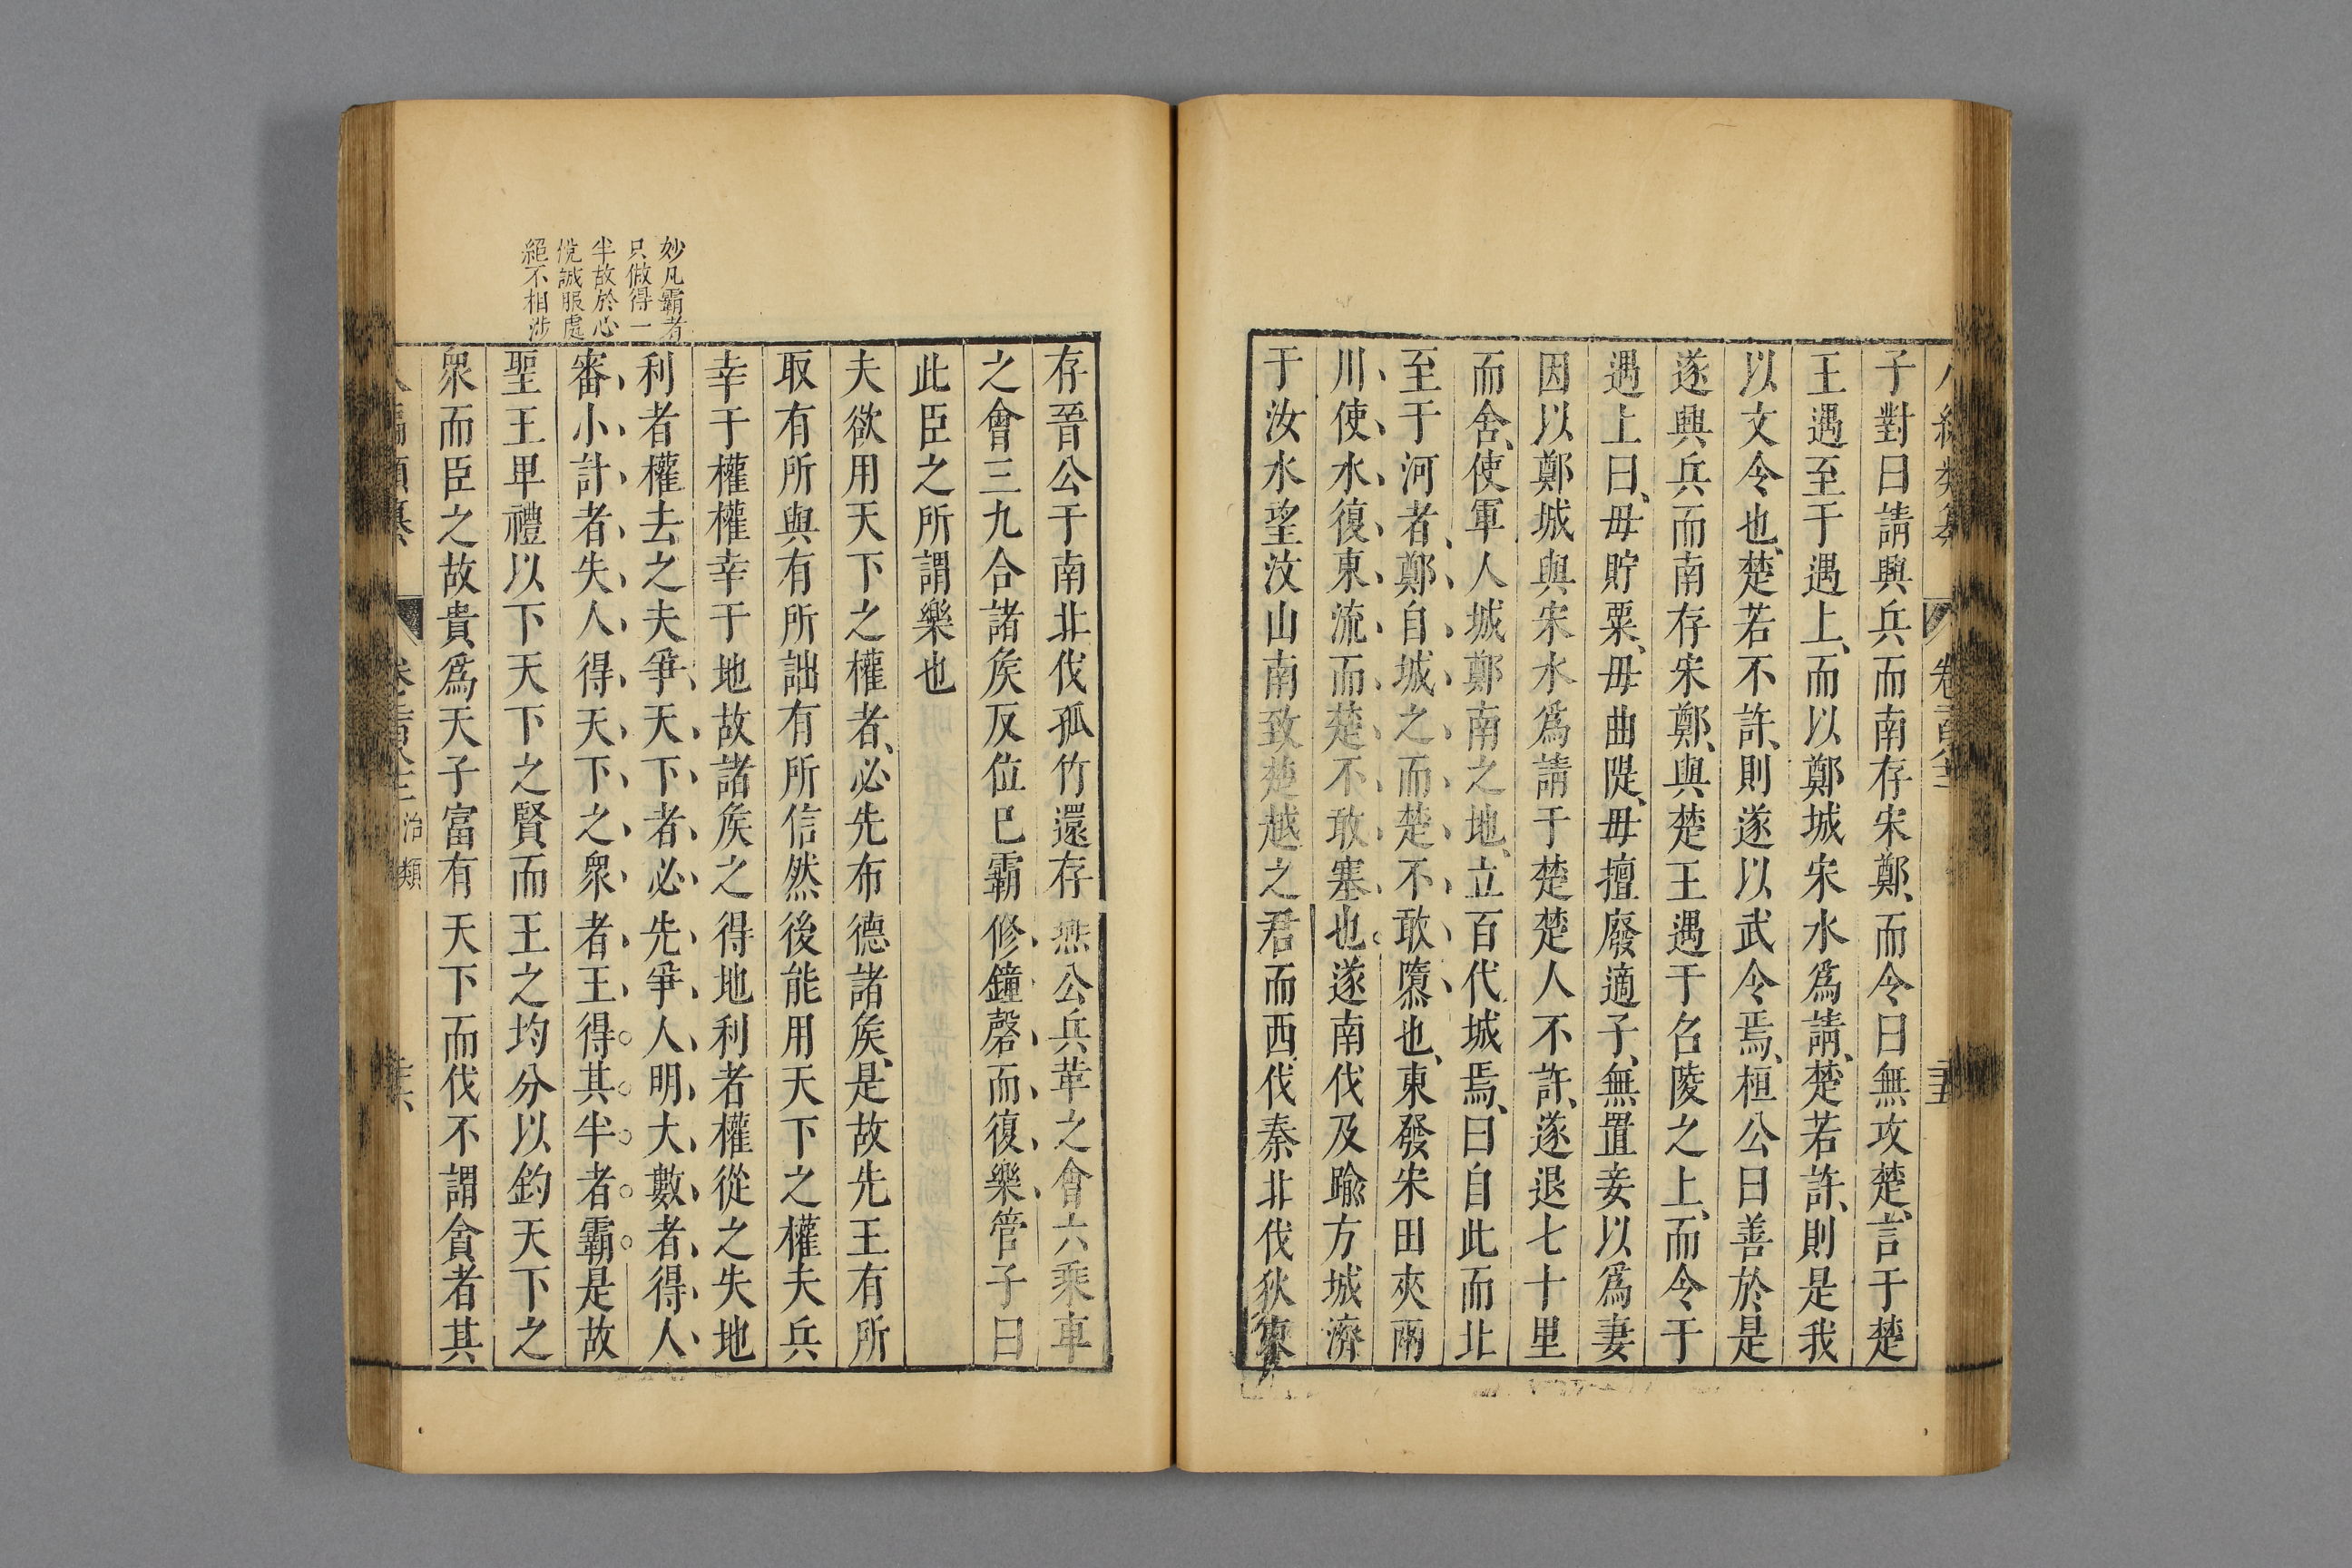 子對曰請興兵而南存宋鄭而令曰無攻楚言于楚
王遇至于遇上而以鄭城宋水為請楚若許則是我
以文令也楚若不許則遂以武令焉桓公曰善於是
遂興兵而南存宋鄭與楚王遇于名陵之上而令于
遇上曰毋貯粟毋曲隄毋擅廢適子無置妾以為妻
因以鄭城與宋水為請于楚楚人不許遂退七十里
而舍使軍人城鄭南之地立百代城焉曰自此而北
至于河者鄭自城之而楚不敢隳也東發宋田夾兩
川使水復東流而楚不敢塞也遂南伐及踰方城濟
于汝水望汶山南致楚越之君而西伐秦北伐狄東
存晉公于南北伐孤竹還存燕公兵革之會六乘車
之會三九合諸矦反位巳霸修鐘磬而復樂管子曰
此臣之所謂樂也
夫欲用天下之權者必先布德諸矦是故先王有所
取有所與有所詘有所信然後能用天下之權夫兵
幸于權權幸于地故諸矦之得地利者權從之失地
利者權去之夫爭天下者必先爭人明大數者得人
審小計者失人得天下之衆者王得其半者霸是故
聖王卑禮以下天下之賢而王之均分以釣天下之
衆而臣之故貴爲天子富有天下而伐不謂貪者其
妙凡霸者
只做得一
半故於心
悅誠服處
絕不相涉
治類